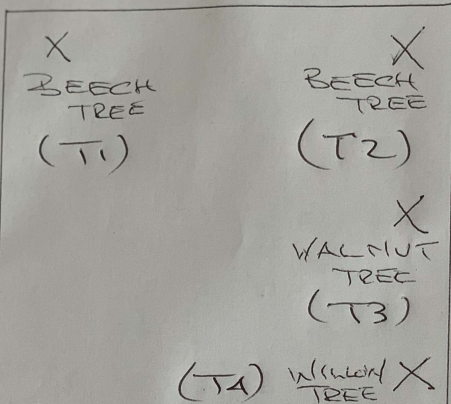 X
BEECH
TREE
(T1)
X
BEECH
TREE
(T2)
X
WALNUT
TREE
(T3)
(T4) WILLOW X
TREE